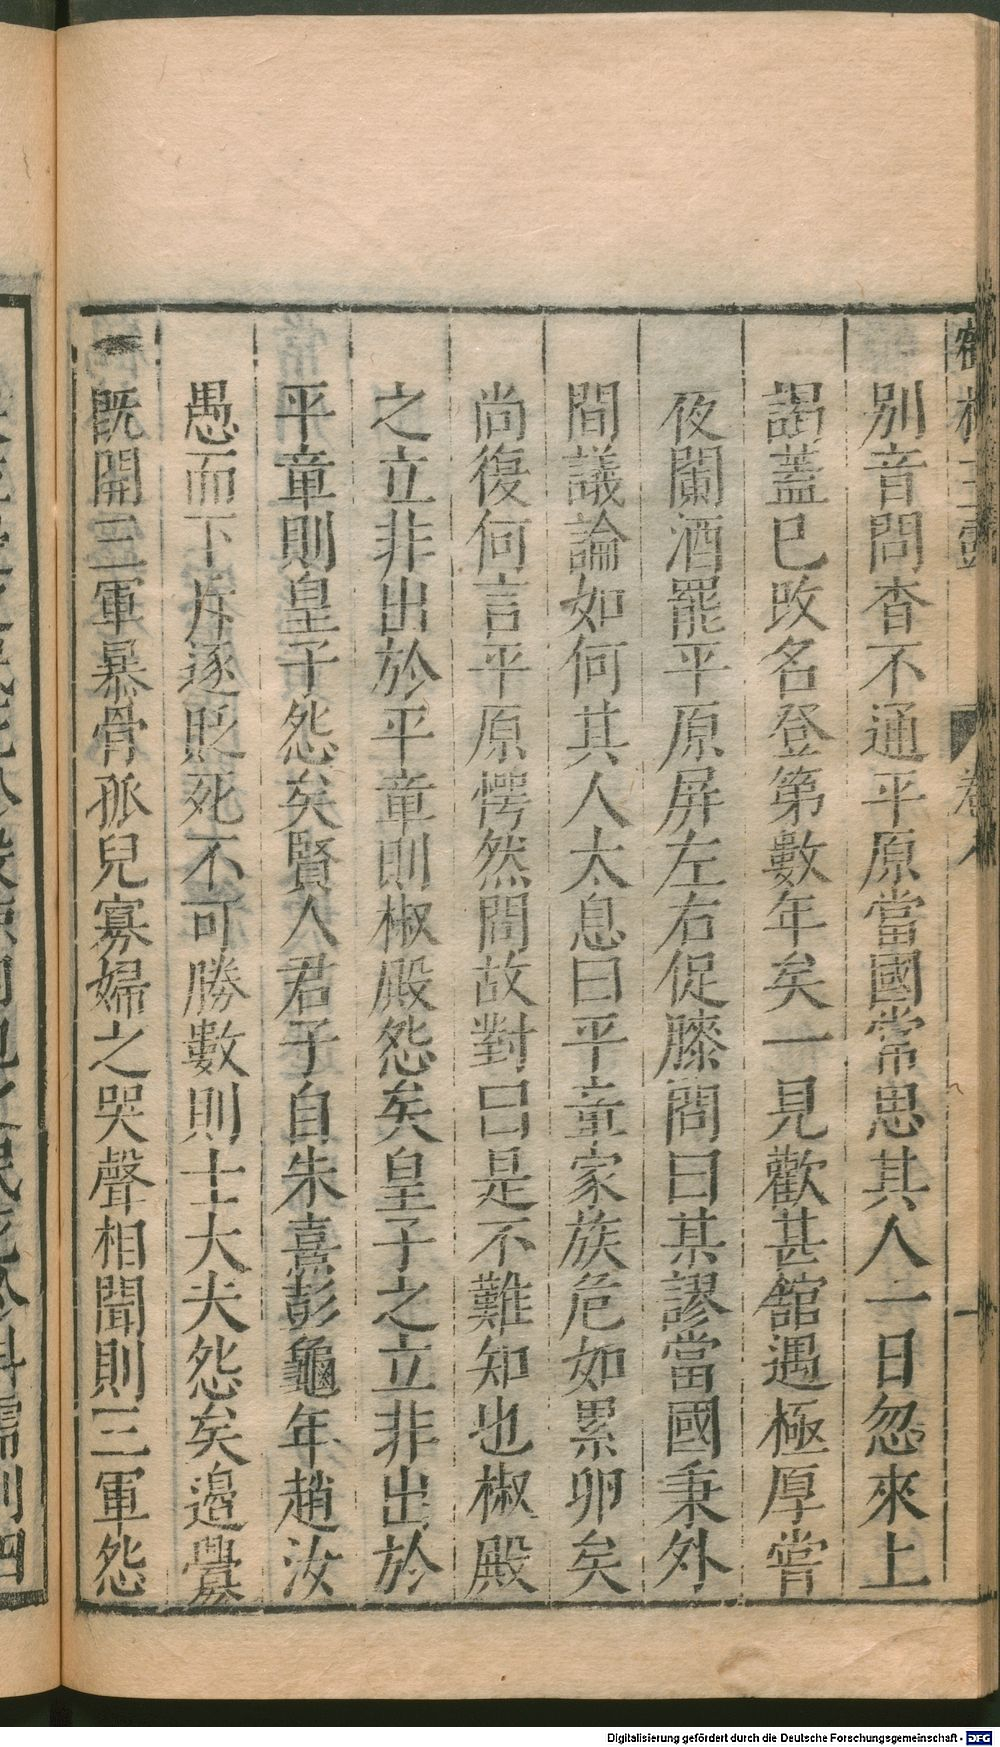 別音問杳不通平原當國常思其人一日忽來上
謁蓋已攺名登第數年矣一見歡甚舘遇極厚嘗
夜闌酒罷平原屏左右促膝問曰某謬當國秉外
間議論如何其人太息曰平章家族危如累卵矣
尚復何言平原愕然問故對曰是不難知也椒殿
之立非出於平章則椒殿怨矣皇子之立非出於
平章則皇子怨矣賢人君子自朱熹彭龜年趙汝
愚而下斥逐貶死不可勝數則士大夫怨矣邊釁
既開三軍暴骨孤兒寡婦之哭聲相聞則三軍怨
Digitalisierung gefördert durch die Deutsche Forschungsgemeinschaft - DFG